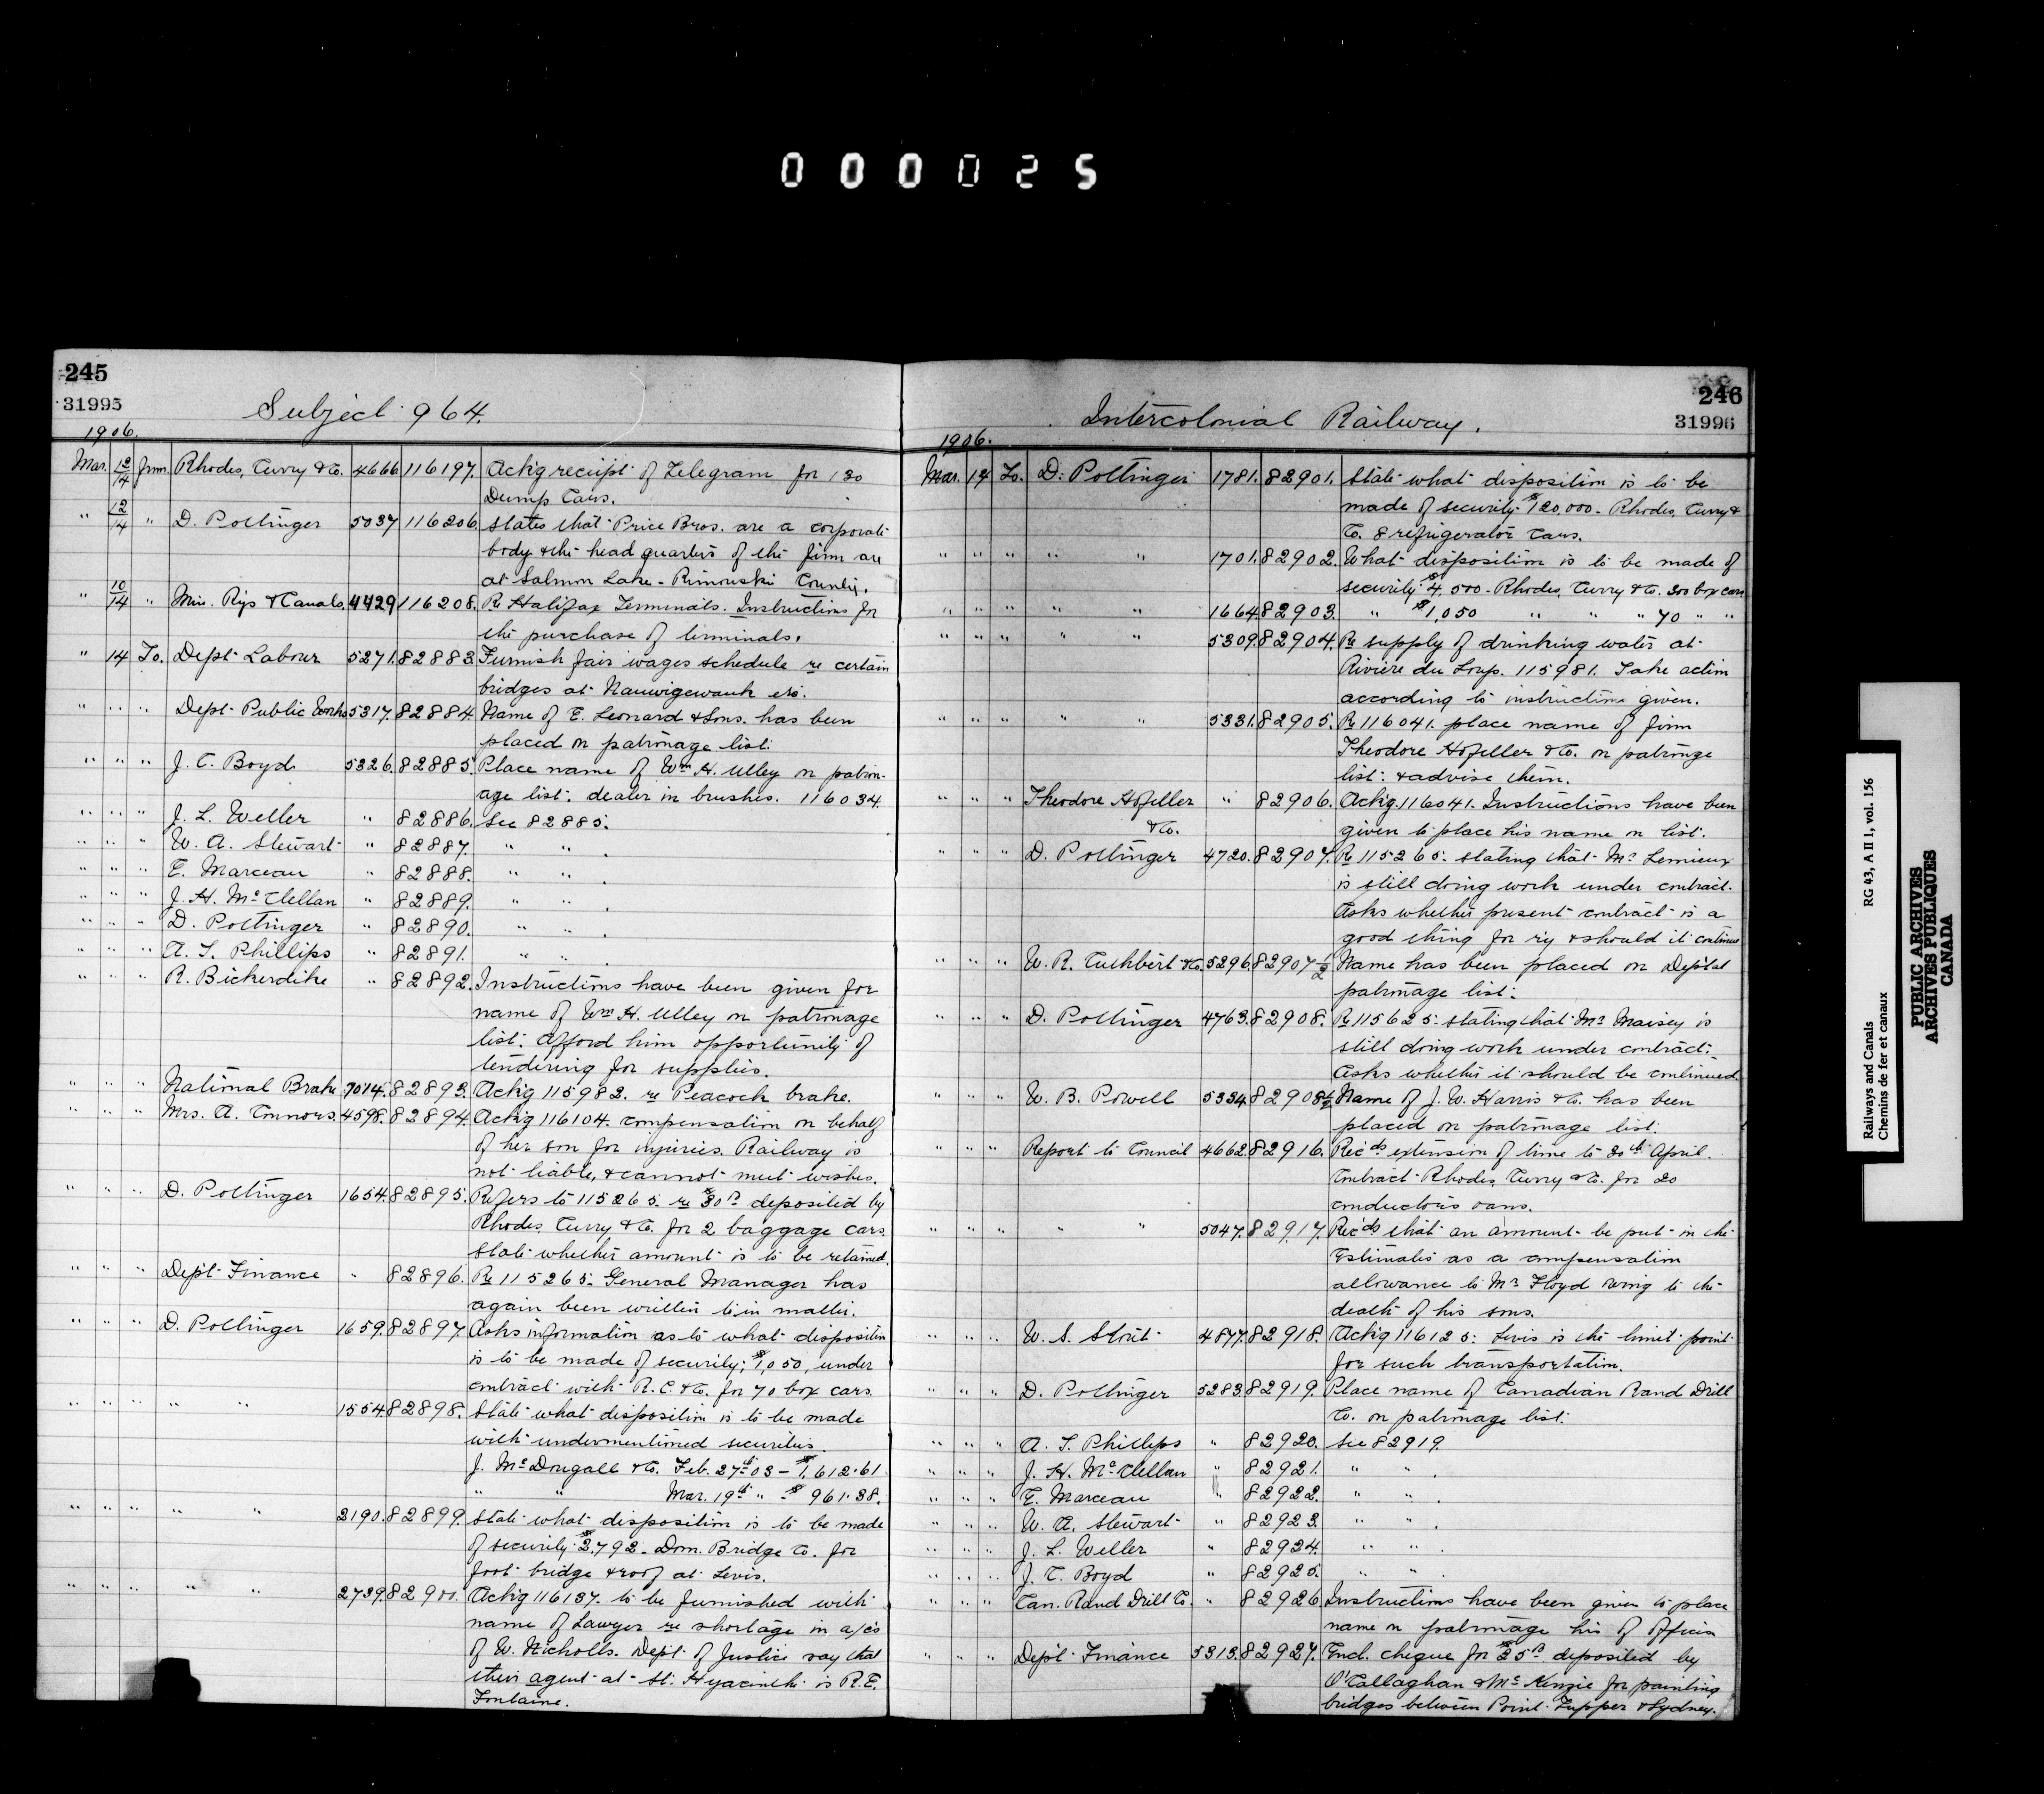 000025
245
31995
Subject 964.
1906.
Mar. 12/14 from Rhodes, Curry & Co. 4666 116197. Ackg receipt of Telegram for 130
Dump Cars.
" 12/14 " D. Pottinger 5037 116206. States that Price Bros. are a corporate
body & the head quarters of the firm are
at Salmon Lake - Rimouski County.
" 10/14 " Min. Rys & Canals. 4429 116208. Re Halifax Terminals. Instructions for
the purchase of terminals.
" 14 To. Dept Labour 5271. 82883. Furnish fair wages schedule re certain
bridges at Nauwigewauk etc.
" " " Dept Public Works 5317. 82884. Name of E. Leonard & Sons. has been
placed on patronage list.
" " " J. C. Boyd 5326. 82885. Place name of Wm H. Ulley on patron-
age list. dealer in brushes. 116034.
" " " J. L. Weller " 82886. See 82885.
" " " W. A. Stewart " 82887. " " .
" " " E. Marceau " 82888. " " .
" " " J. H. McClellan " 82889. " " .
" " " D. Pottinger " 82890. " " .
" " " A. T. Phillips " 82891. " " .
" " " R. Bickerdike " 82892. Instructions have been given for
name of Wm H. Ulley on patronage
list. Afford him opportunity of
tendering for supplies.
" " " National Brake 7014. 82893. Ackg 115982. re Peacock brake.
" " " Mrs. A. Connors. 4598. 82894. Ackg 116104. compensation on behalf
of her son for injuries. Railway is
not liable, & cannot meet wishes.
" " " D. Pottinger 1654. 82895. Refers to 115265. re $30.00 deposited by
Rhodes, Curry & Co. for 2 baggage cars.
State whether amount is to be retained.
" " " Dept Finance " 82896. Re 115265. General Manager has
again been written to in matter.
" " " D. Pottinger 1659. 82897. Asks information as to what disposition
is to be made of security; $1,050, under
contract with R. C. & Co. for 70 box cars.
" " " " " 1554. 82898. State what disposition is to be made
with undermentioned securities.
J. McDougall & Co. Feb. 27th 03 - $1,612.61
" " Mar. 19th " - $ 961.38.
" " " " " 2190. 82899. State what disposition is to be made
of security $3,792 - Dom. Bridge Co. for
foot bridge & roof at Levis.
" " " " " 2739. 82900. Ackg 116137. to be furnished with
name of Lawyer re shortage in a/cs
of W. Nicholls. Dept. of Justice say that
their agent at St. Hyacinthe is R. E.
Fontaine.
246
31996
Intercolonial Railway.
1906.
Mar. 14 To. D. Pottinger 1781. 82901. State what disposition is to be
made of security $120,000 - Rhodes, Curry &
Co. 8 refrigerator cars.
" " " " " 1701. 82902. What disposition is to be made of
security $4,500 - Rhodes, Curry & Co. 300 box cars
" " " " " 1664. 82903. " $1,050 " " " 70 " "
" " " " " 5309. 82904. Re supply of drinking water at
Riviere du Loup. 115981. Take action
according to instructions given.
" " " " " 5331. 82905. Re 116041. place name of firm
Theodore Hofeller & Co. on patronage
list. & advise them.
" " " Theodore Hofeller " 82906. Ackg. 116041. Instructions have been
& Co. given to place his name on list.
" " " D. Pottinger 4720. 82907. Re 115265. stating that Mr Lemieux
is still doing work under contract.
Asks whether present contract is a
good thing for ry & should it continue
" " " W. R. Cuthbert & Co. 5296. 82907 1/2 Name has been placed on Deptal
patronage list.
" " " D. Pottinger 4763. 82908. Re 115625. stating that Mr Maisey is
still doing work under contract.
Asks whether it should be continued.
" " " W. B. Powell 5334. 82908 1/2 Name of J. W. Harris & Co. has been
placed on patronage list.
" " " Report to Council 4662. 82916. Recds extension of time to 30th April.
Contract Rhodes, Curry & Co. for 20
conductors vans.
" " " " " 5047. 82917. Recds that an amount be put in the
Estimates as a compensation
allowance to Mr Floyd owing to the
death of his sons.
" " " W. S. Stout 4877. 82918. Ackg 116125. Levis is the limit point
for such transportation.
" " " D. Pottinger 5283. 82919. Place name of Canadian Rand Drill
Co. on patronage list.
" " " A. T. Phillips " 82920. See 82919
" " " J. H. McClellan " 82921. " " .
" " " E. Marceau " 82922. " " .
" " " W. A. Stewart " 82923. " " .
" " " J. L. Weller " 82924. " " .
" " " J. C. Boyd " 82925. " " .
" " " Can. Rand Drill Co. " 82926. Instructions have been given to place
name on patronage his of
" " " Dept Finance 5313. 82927. Encl. cheque for deposited by
O'Callaghan & McKenzie for painting
bridges between Point Tupper & Sydney.
Railways and Canals RG 43, A II 1, vol. 156
Chemins de fer et canaux
PUBLIC ARCHIVES
ARCHIVES PUBLIQUES
CANADA